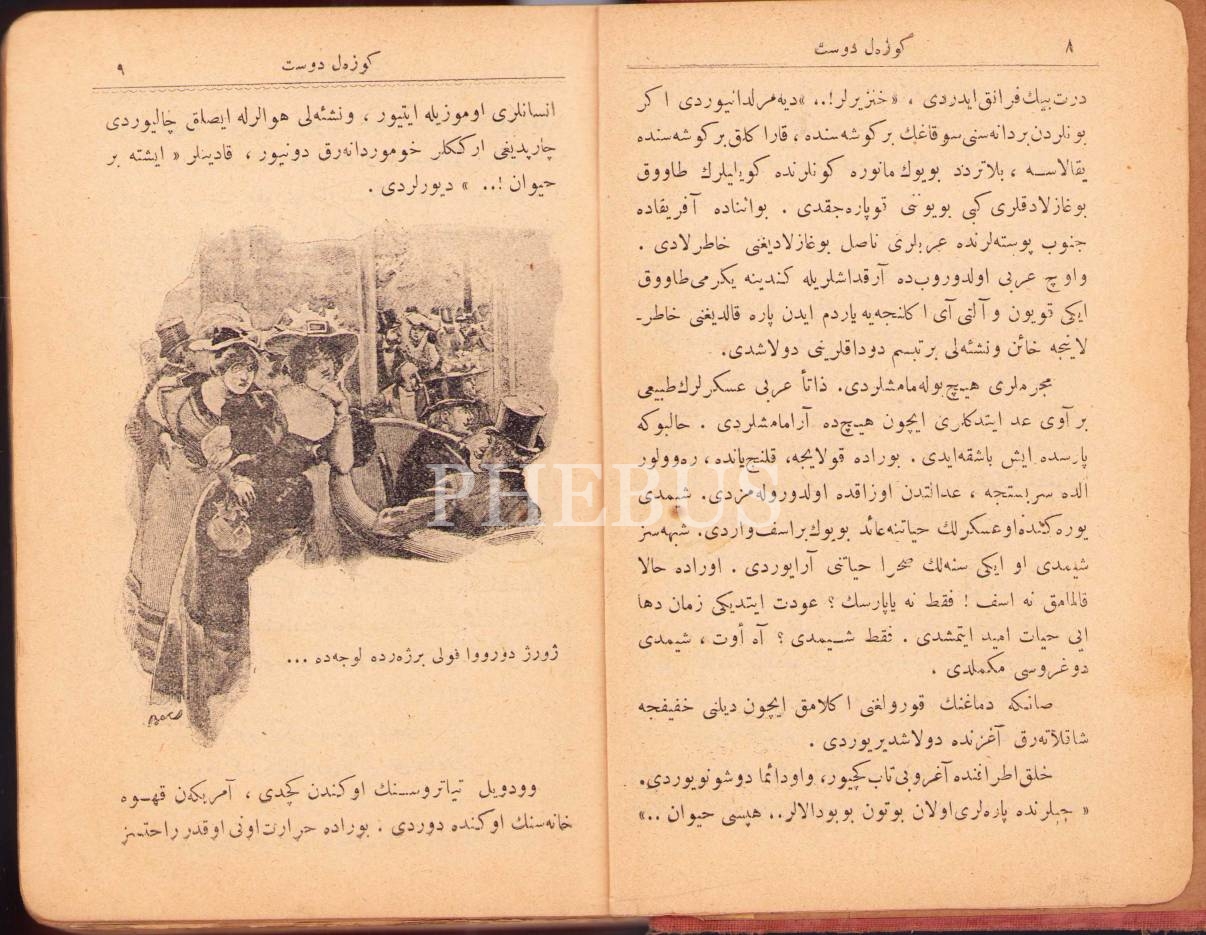 ٨
كوزەل دوست
درت بيك فرانق ايدردی ، «خنزيرلر!.. »ديەمرلدانيوردی اكر
بونلردن بردانەسنی سوقاغك بركوشەسندە ، قارا كلق بركوشەسندە
يقالاسـە ، بلاتردد بويوك مانورە كونلرندە كويليلرك طاووق
بوغازلادقلری كبی بويوننی قوپارەجقدی . بواثنادە آفريقادە
جنوب پوستەلرندە عربلری ناصل بوغازلاديغنی خاطرلادی .
واوچ عربی اولدوروبدە آرقداشلريلە كندينە يكرمی طاووق
ايكی قويون و آلتی آی اكلنجەيە ياردم ايدن پارە قالديغنی خاطرـ
لاينجە خائن ونشئەلی برتبسم دوداقلرينی دولاشدی.
مجرملری هيچ بولەمامشلردی. ذاتأ عربی عسكرلرك طبيعی
بر آوی عد ايتدكلری ايچون هيچدە آرامامشلردی . حالبوكە
پارسدە ايش باشقەايدی . بورادە قولايجە، قلنج ياندە ، رەوولور
الدە سربستجە ، عدالتدن اوزاقدە اولدورولەمزدی. شيمدی
يورەكندە او عسكرلك حياتنە عائد بويوك براسف واردی. شبهەسز
شيمدی او ايكی سنەلك صحرا حياتنی آرايوردی . اورادە حالا
قالمامق نە اسف ! فقط نە ياپارسك ؟ عودت ايتديكی زمان دها
ايی حيات اميد ايتمشدی . فقط شـيمدی ؟ آه أوت ، شيمدی
دوغروسی مكملدی .
صانكە دماغنك قورولغنی اكلامق ايچون ديلنی خفيفجە
شاقلاتەرق آغزندە دولاشديريوردی .
خلق اطرافندە آغر وبی تاب كچيور، واودائما دوشونويوردی.
« جبلرندە پارەلری اولان بوتون بوبودالالر.. هپسی حيوان ..»
كوزەل دوست
٩
انسانلری اوموزيلە ايتيور ، ونشئەلی هوالرلە ايصلق چاليوردی
چارپديغی اركلكلر خوموردانەرق دونيور ، قادينلر « ايشتە بر
حيوان !.. » ديورلردی .
ژورژ دورووا فولی برژەردە لوجەدە ...
وودويل تياتروسـنك اوكندن كچدی ، آمريكەن قهـوە
خانەسنك اوكندە دوردی . بورادە حرارت اونی اوقدر راحتسز
PHEBUS